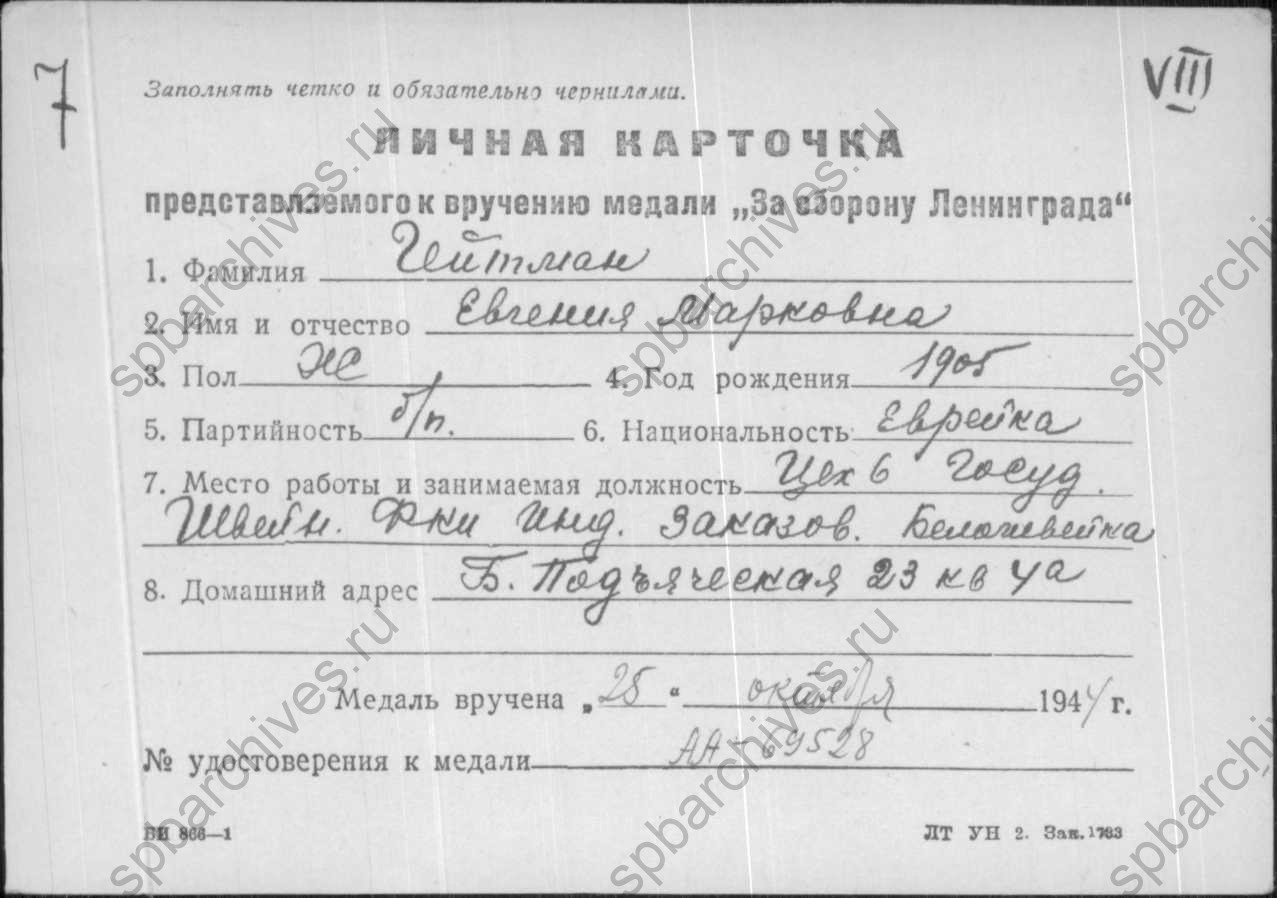 7
VIII
Заполнять четко и обязательно чернилами.
ЛИЧНАЯ КАРТОЧКА
представляемого к вручению медали „За оборону Ленинграда“
1. Фамилия Гейтман
2. Имя и отчество Евгения Марковна
3. Пол Ж 4. Год рождения 1905
5. Партийность б/п. 6. Национальность Еврейка
7. Место работы и занимаемая должность Цех 6 Госуд.
Швейн. Ф-ки Инд. Заказов. Белошвейка
8. Домашний адрес Б. Подъяческая 23 кв 4а
Медаль вручена „25“ октября 1944 г.
№ удостоверения к медали АА-69528
БИ 866—1
ЛТ УН 2. Зак. 1783
spbarchives.ru
spbarchives.ru
spbarchives.ru
spbarchives.ru
spbarchives.ru
spbarchives.ru